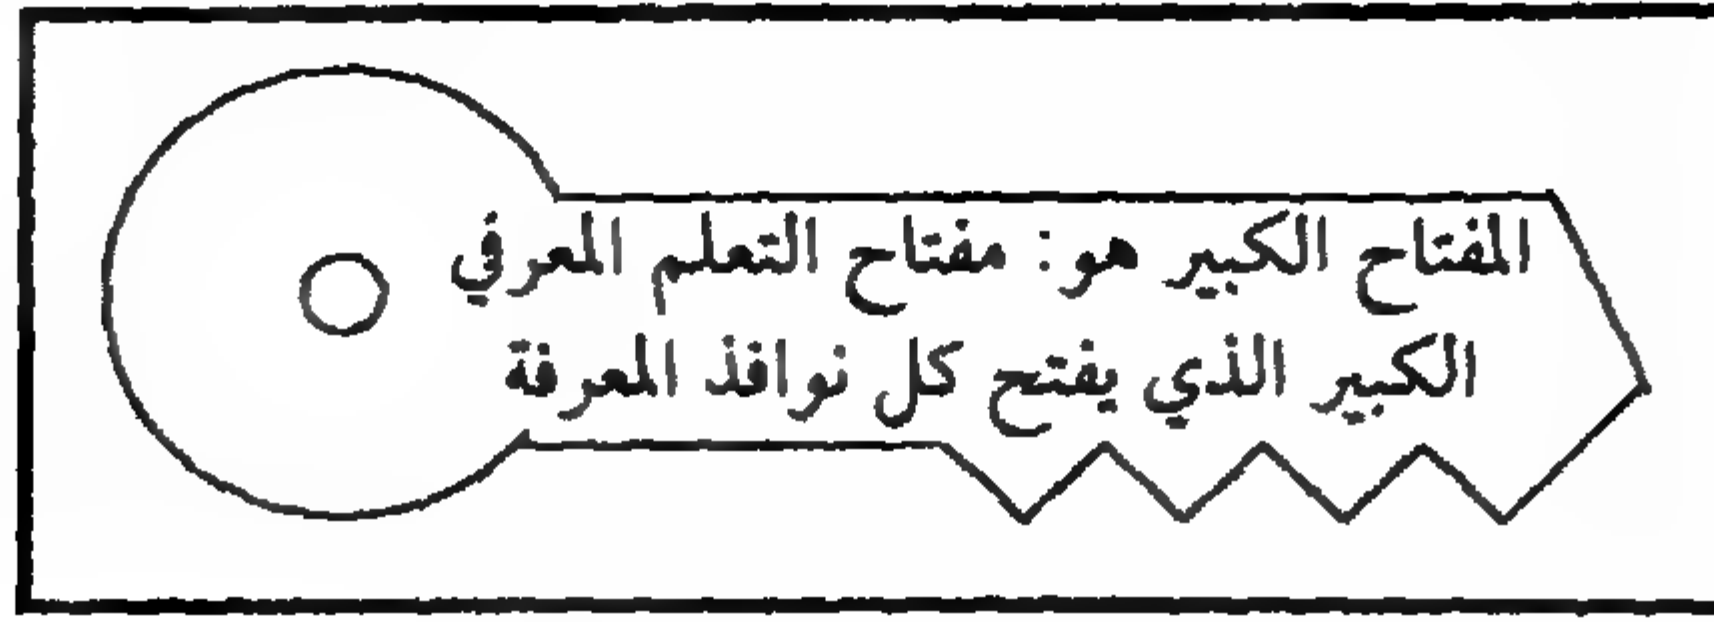 المفتاح الكبير هو: مفتاح التعلم المعرفي
الكبير الذي يفتح كل نوافذ المعرفة